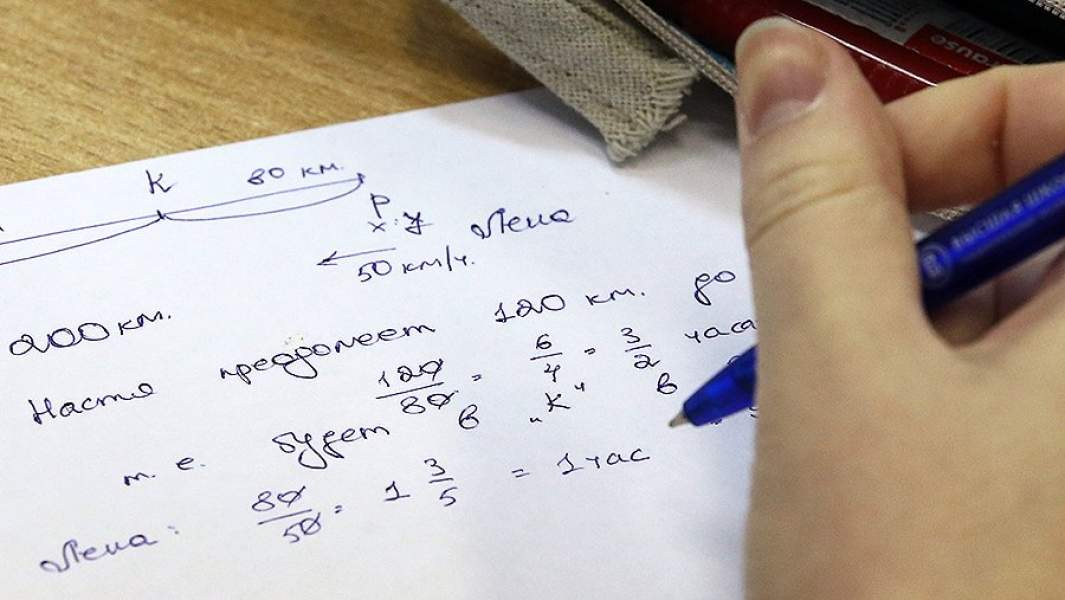 К 80 км.
Р
x y Лена
50 км/ч.
200 км.
Настя 120 км. до
120/80 = 6/4 = 3/2 часа
т. е. будет в "К" в
Лена: 80/50 = 1 3/5 = 1 час